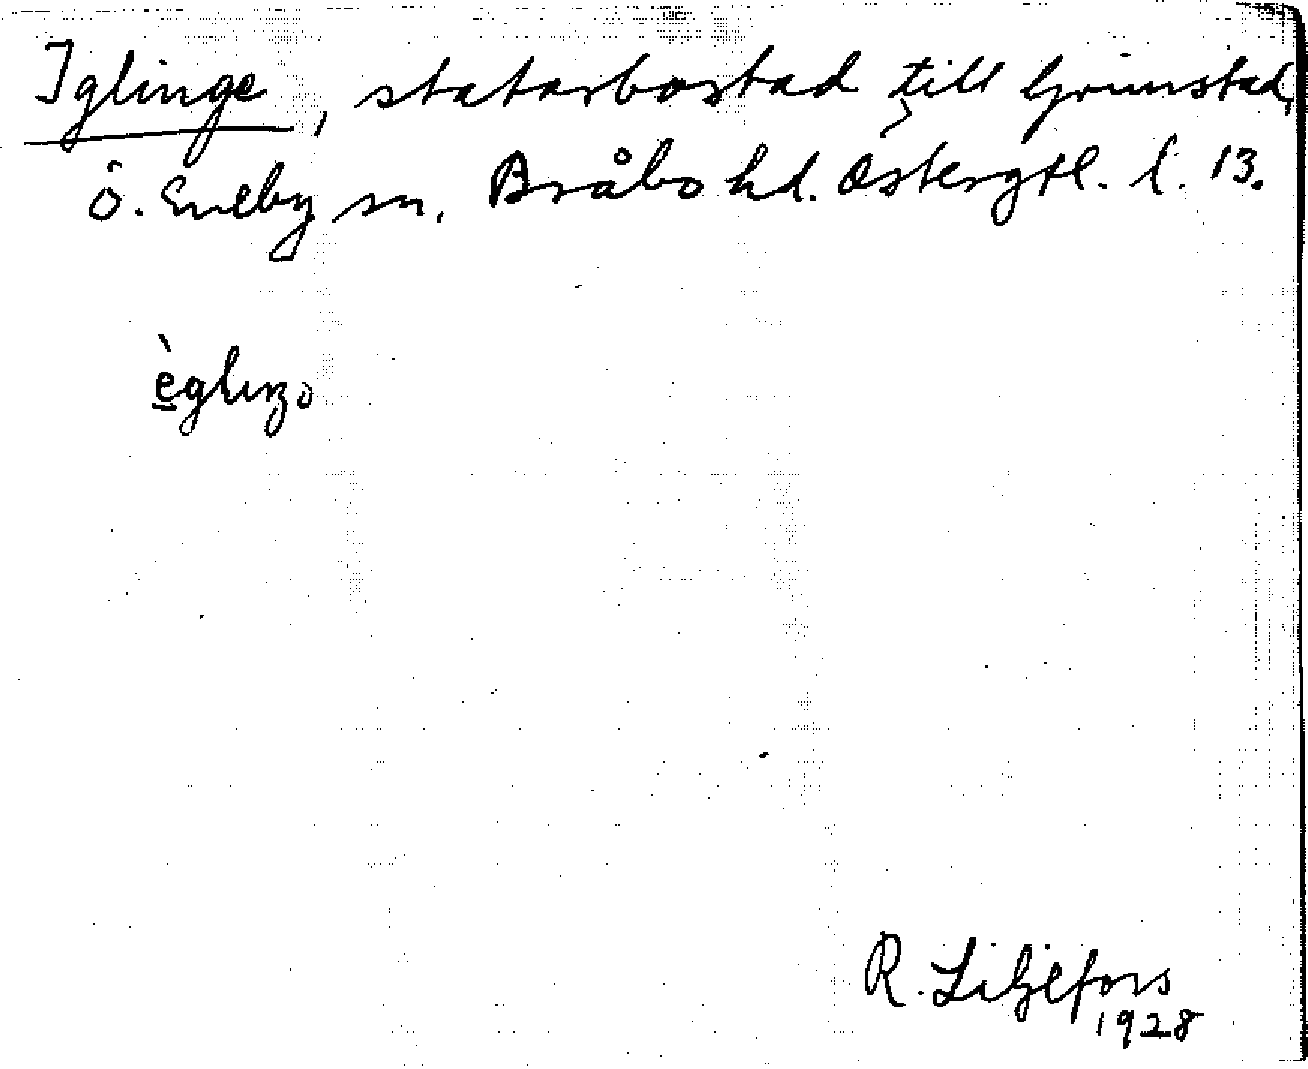 Iglinge, statarbostad till Grimstad,
Ö. Eneby sn, Bråbo hd. Östergtl. l. 13.
R. Liljefors
1928